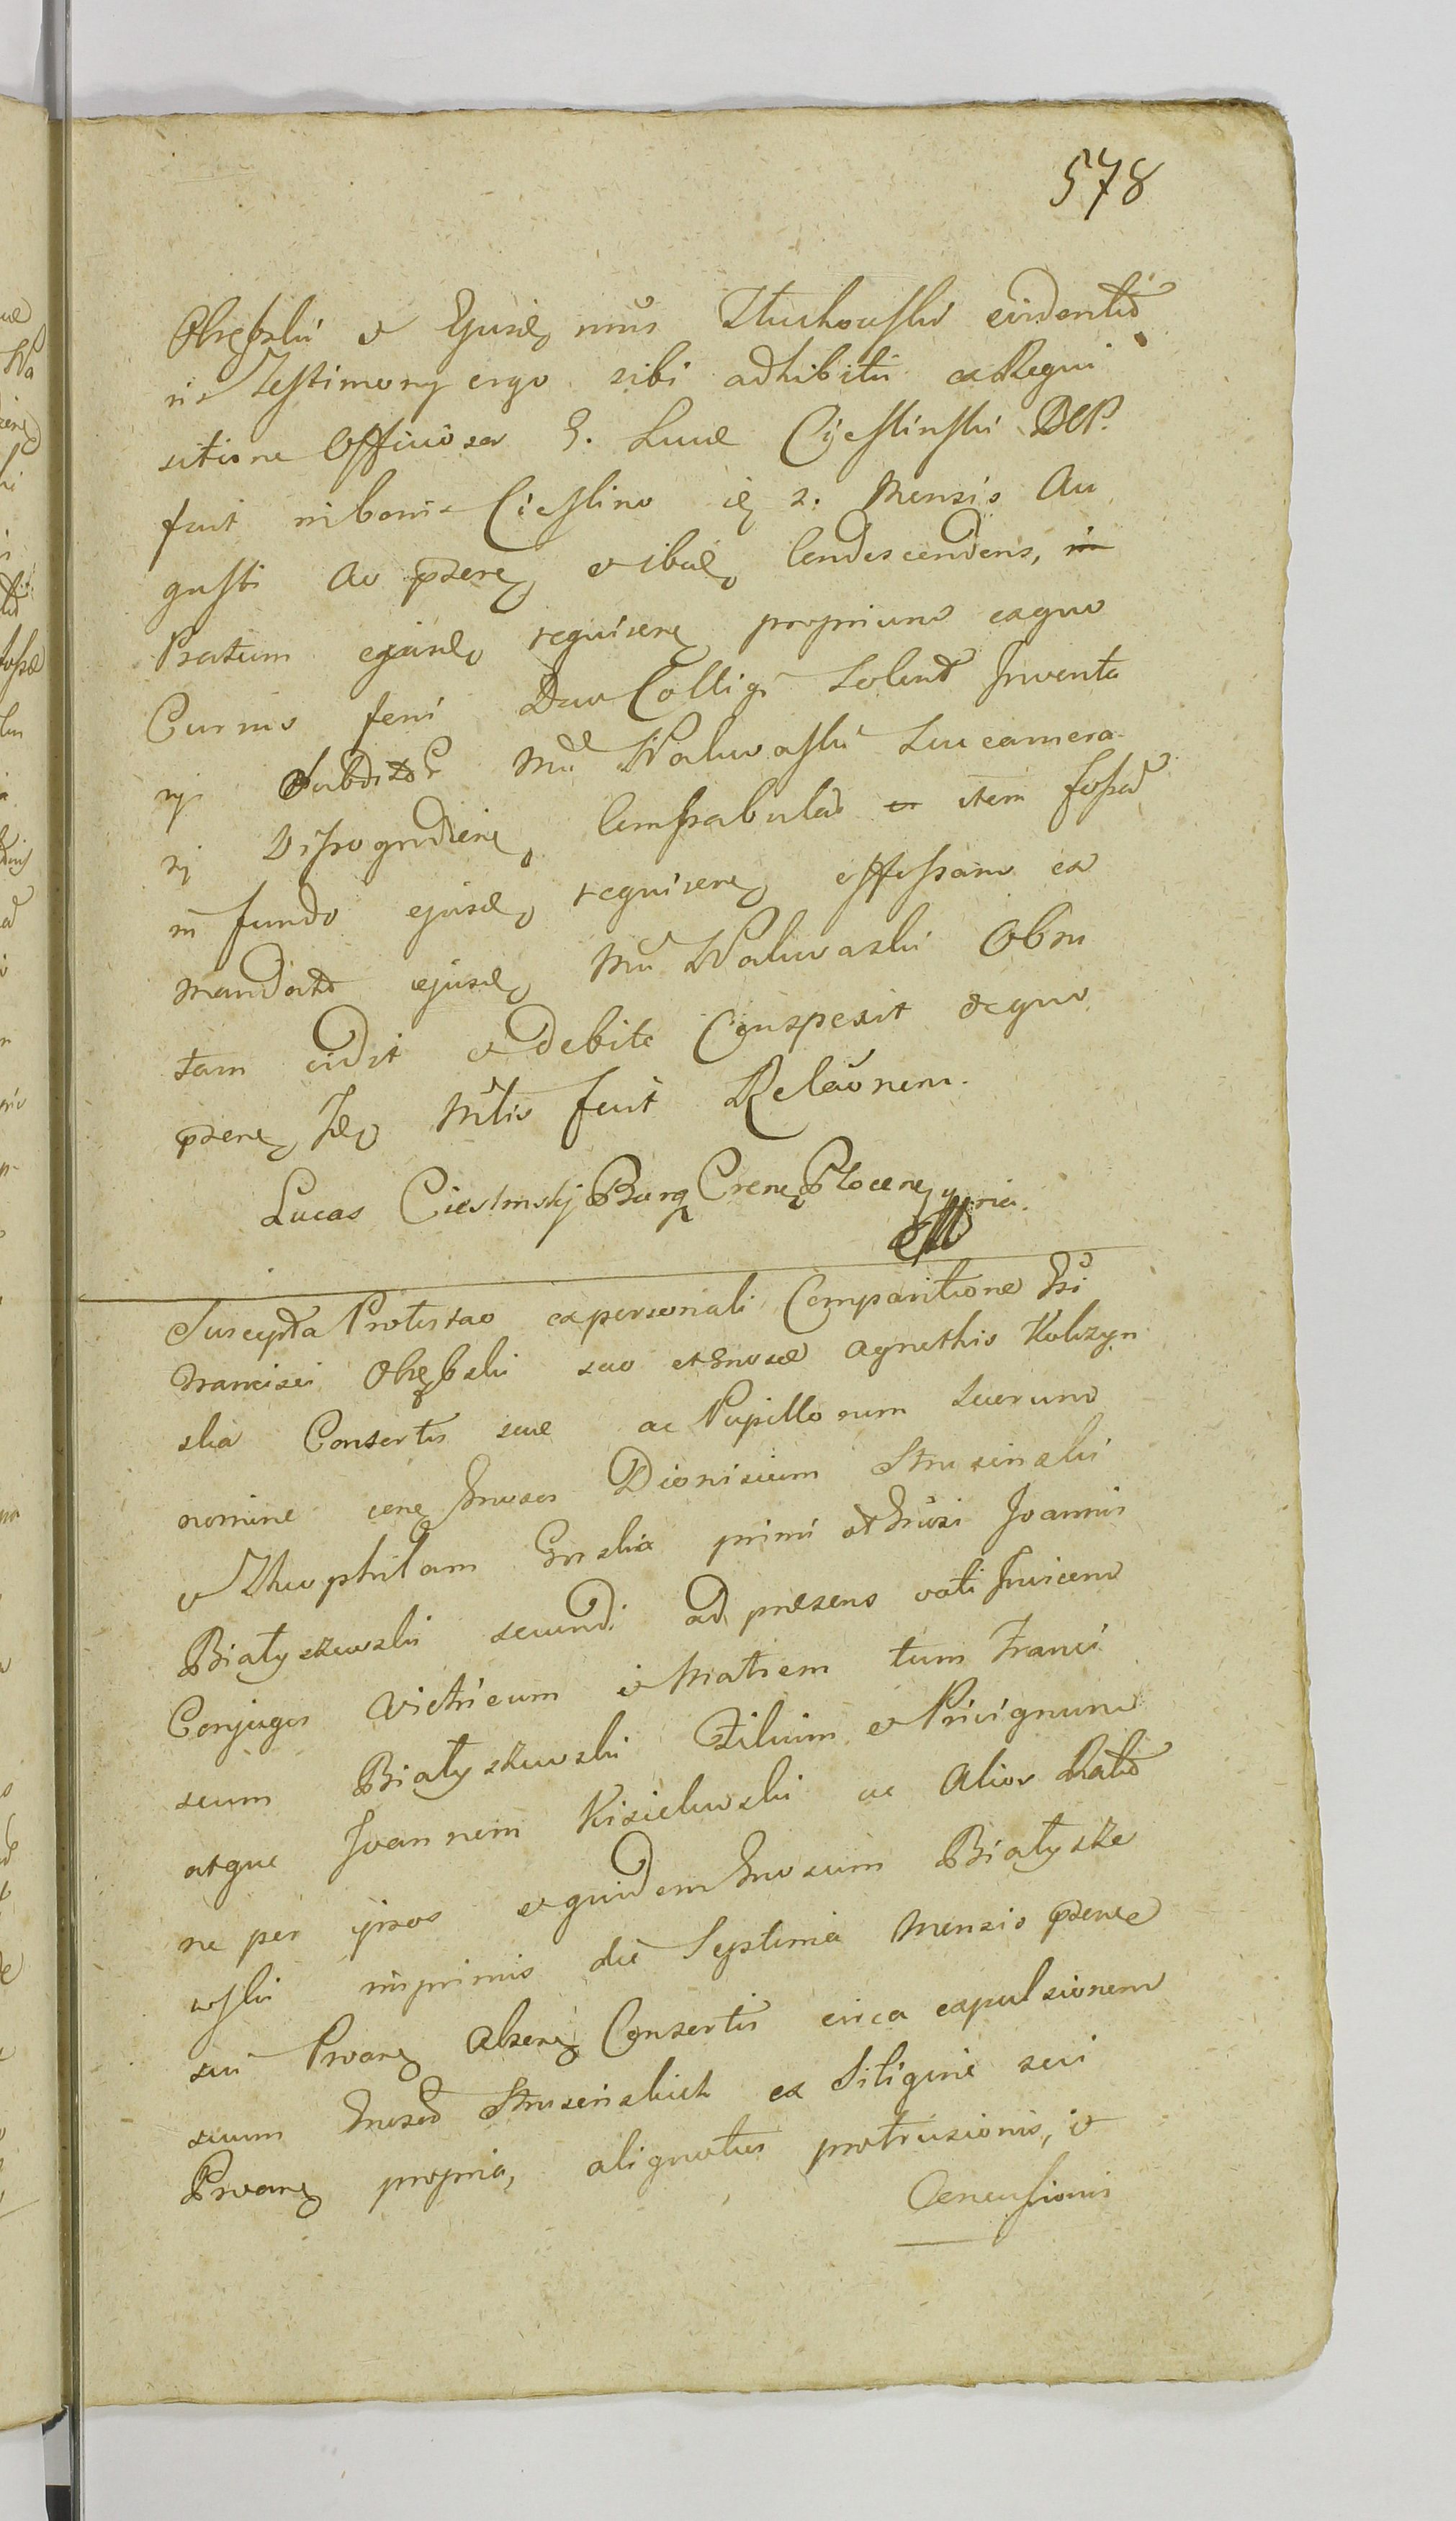 578
Okębski et Ejusdę mūs Stuchowski evidentiō
ris Testimony ergo sibi adhibitū ex Requi
sitione Officiosa G. Lucæ Cieslinski BCP.
fuit in bonis Cieslino dę 2. Mensis Au
gusti Ao pzenę et ibidę Condescendens, in
Pratum ejusdę requirenę proprium ex quo
Currus feni Duo Colligi solent Inventa
rij Subditor Mci Walewski Succamera
rij Vissogrodienę Compabulat et item fossā
in fundo ejusdę requirenę effossam ex
mandato ejusdę Mci Walewski Obru
tam vidit et debite Conspexit de quo
pzenę Idę Mltis fecit Relaōnem.
Lucas Cieslinskj Burg Crenę Plocenę
Suscepta Protestao ex personali Comparitione Gsi
Francisci Okębski suo et Gnosæ Agnethis Kolizyn
skia Consortis suæ ac Pupillorum suorum
nomine cenę Gnosos Dionisium Strusinski
et Theophilam primi et Gnosi Joannis
Białyszewski secundi ad præsens voti Invicem
Conjuges Vietricum et Matrem tum Franci
scum Białyszewski Filium et Privignum
atque Joannem Kisielewski ac Alios Ratiō
ne per ipsos et quidem Gnosum Białysze
wski imprimis die Septima Mensis pzenæ
sui Proanę Absenę Consortis circa expulsionem
suum Gnosor Strusinskich ex Siligine sui
Proanę propria, aliquotus protrusionis, et
Concussionis